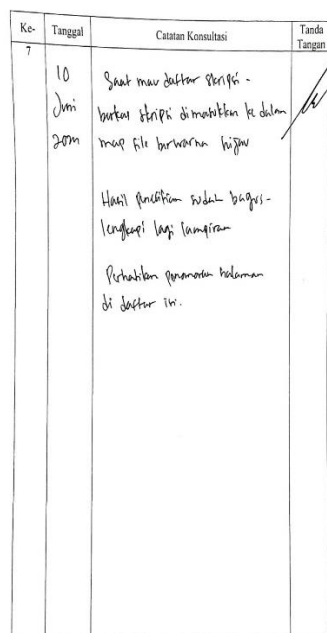 Ke-
Tanggal
Catatan Konsultasi
Tanda
Tangan
7
10
Juni
Saat mau daftar skripsi -
berkas skripsi dimasukkan ke dalam
map file berwarna hijau
Hasil penelitian sudah bagus -
lengkapi lagi lampiran
Perhatikan penomoran halaman
di daftar isi.